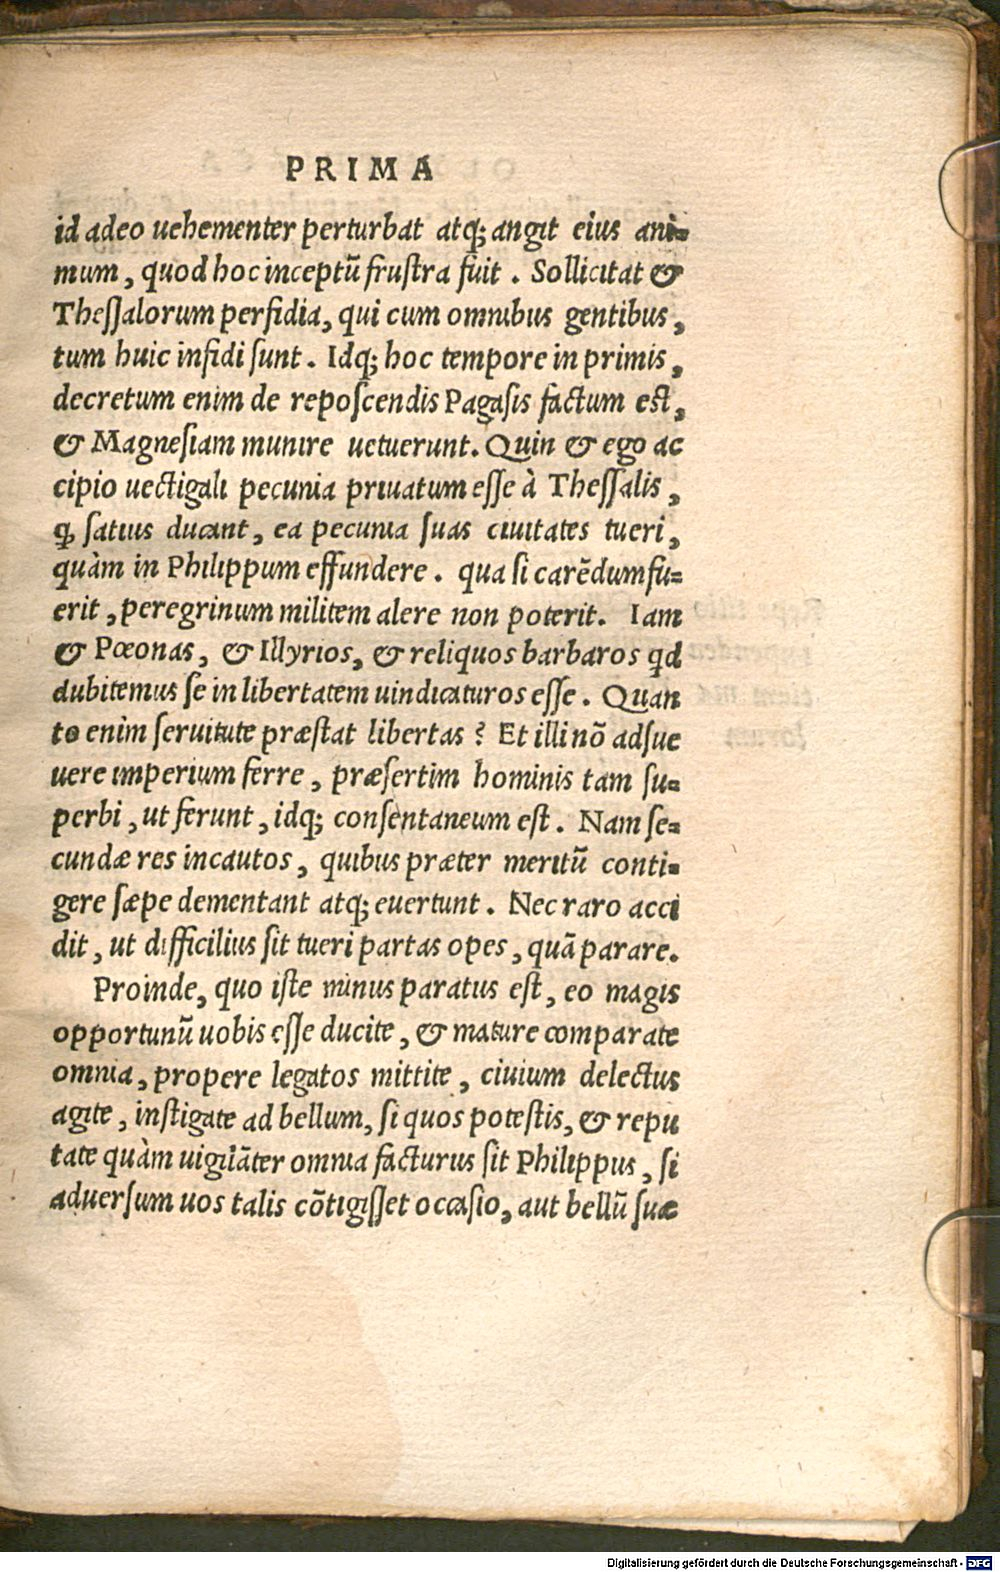 PRIMA
id adeo uehementer perturbat atq; angit eius ani-
mum, quod hoc inceptũ frustra fuit. Sollicitat &
Thessalorum perfidia, qui cum omnibus gentibus,
tum huic infidi sunt. Idq; hoc tempore in primis,
decretum enim de reposcendis Pagasis factum est,
& Magnesiam munire uetuerunt. Quin & ego ac
cipio uectigali pecunia priuatum esse à Thessalis,
ꝙ satius ducant, ea pecunia suas ciuitates tueri,
quàm in Philippum effundere. qua si carẽdum fu-
erit, peregrinum militem alere non poterit. Iam
& Pœonas, & Illyrios, & reliquos barbaros qd
dubitemus se in libertatem uindicaturos esse. Quan
to enim seruitute præstat libertas? Et illi nõ adsue
uere imperium ferre, præsertim hominis tam su-
perbi, ut ferunt, idq; consentaneum est. Nam se-
cundæ res incautos, quibus præter meritũ conti-
gere sæpe dementant atq; euertunt. Nec raro acci
dit, ut difficilius sit tueri partas opes, quã parare.
Proinde, quo iste minus paratus est, eo magis
opportunũ uobis esse ducite, & mature comparate
omnia, propere legatos mittite, ciuium delectus
agite, instigate ad bellum, si quos potestis, & repu
tate quàm uigilãter omnia facturus sit Philippus, si
aduersum uos talis cõtigisset occasio, aut bellũ suæ
Digitalisierung gefördert durch die Deutsche Forschungsgemeinschaft - DFG